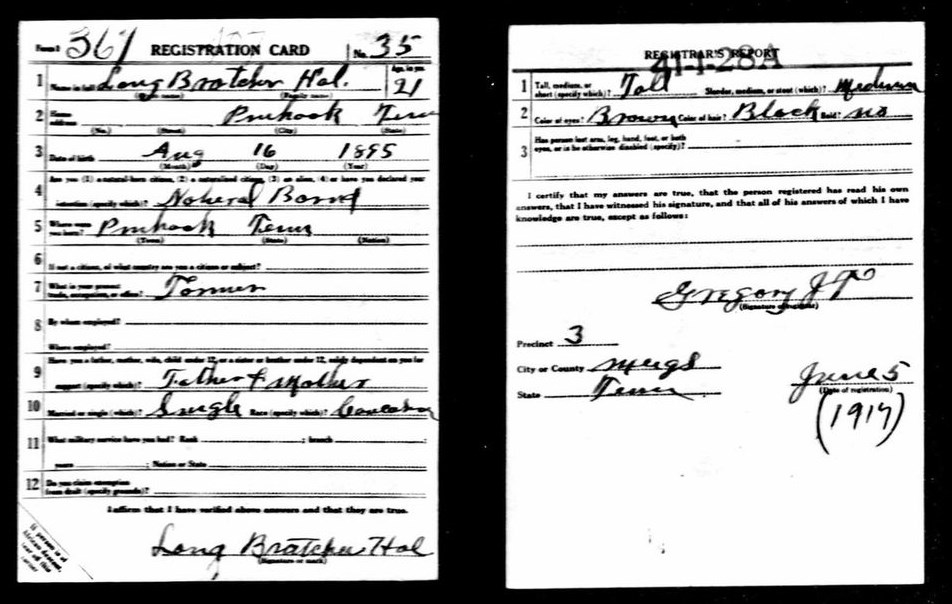 Form 1 367 REGISTRATION CARD No. 35
1 Name in full Long Bratcher Hal. Age, in yrs. 21
(Given name) (Family name)
2 Home address Pinhook Tenn
(No.) (Street) (City) (State)
3 Date of birth Aug 16 1895
(Month) (Day) (Year)
4 Are you (1) a natural-born citizen, (2) a naturalized citizen, (3) an alien, (4) or have you declared your
intention (specify which)?
5 Where were you born? Pinhook Tenn
(Town) (State) (Nation)
6 If not a citizen, of what country are you a citizen or subject?
7 What is your present trade, occupation, or office?
8 By whom employed?
Where employed?
9 Have you a father, mother, wife, child under 12, or a sister or brother under 12, solely dependent on you for
support (specify which)? Father & Mother
10 Married or single (which)? Single Race (specify which)?
11 What military service have you had? Rank ; branch ;
years ; Nation or State
12 Do you claim exemption from draft (specify grounds)?
I affirm that I have verified above answers and that they are true.
Long Bratcher Hal
(Signature or mark)
If person is of
African descent,
tear off this
corner
REGISTRAR'S REPORT
41-1-28A
1 Tall, medium, or short (specify which)? Tall Slender, medium, or stout (which)? Medium
2 Color of eyes? Brown Color of hair? Black Bald? no
3 Has person lost arm, leg, hand, foot, or both
eyes, or is he otherwise disabled (specify)?
I certify that my answers are true, that the person registered has read his own
answers, that I have witnessed his signature, and that all of his answers of which I have
knowledge are true, except as follows:
Gregory J T
(Signature of registrar)
Precinct 3
City or County Meigs
State Tenn
June 5
(Date of registration)
(1917)